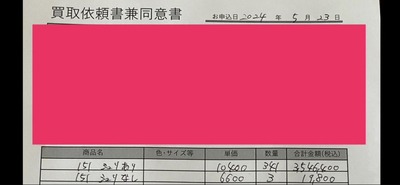 買取依頼書兼同意書 お申込日2024年 5月 23日
商品名 色・サイズ等 単価 数量 合計金額(税込)
151 シュリあり 10400 341 3546400
151 シュリなし 6600 3 19,800